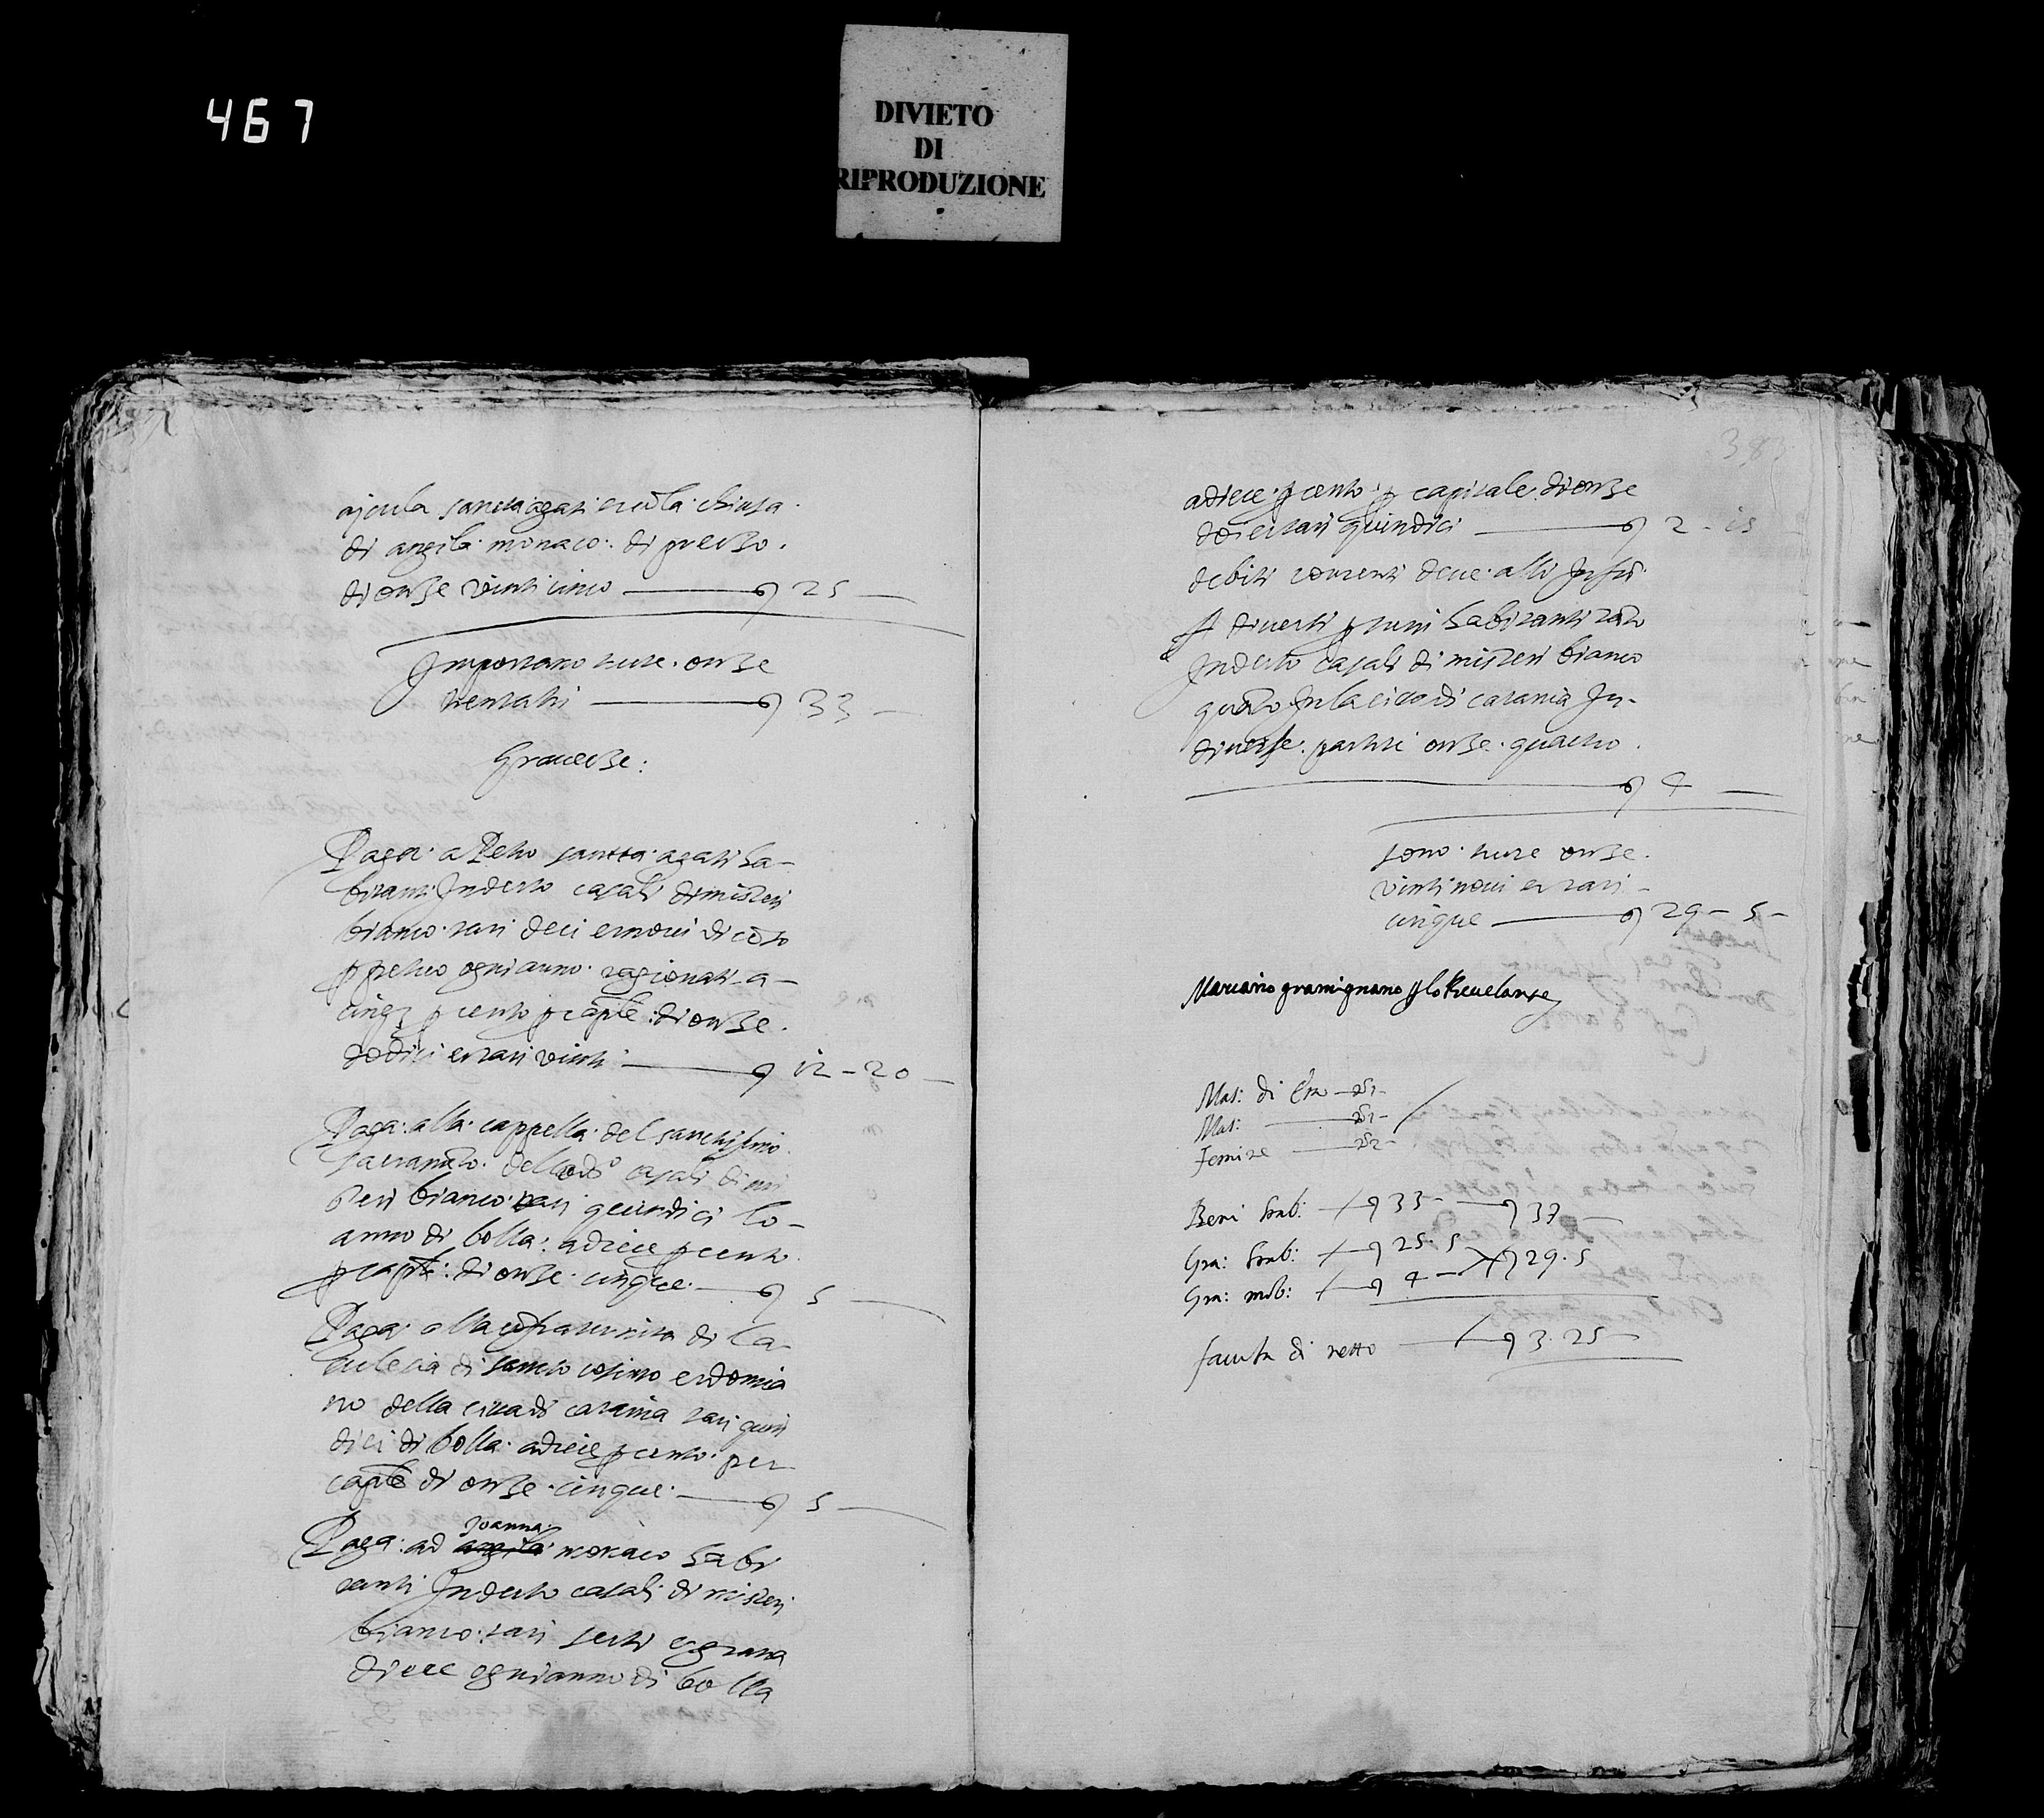 467
DIVIETO
DI
RIPRODUZIONE
sancta agati et cu la chiusa
di angila monaco: di prezzo.
di onze vinti cinco — 25 —
Importano tutte. onze
trentatri — 33 —
Gravezze:
Paga: a Petro santta agati ha-
bitanti In detto casali di misteri
bianco. tari deci e novi di
ppetuo ogni anno. ragionati a-
cinq p cento p caple: di onze.
dodici et tari vinti — 12 - 20 —
Paga: alla cappella del santissimo
sacramto. dello casali di mi
steri bianco tari quindici lo-
anno di bolla: a diece p cento
p caple: di onze cinque. — 5 —
Paga: alla cofraternita di la
eclesia di santo cosimo e domia
no della citta di catania tari quin
dici di bolla: a diece p cento: per
caple di onze. cinque. — 5 —
Joanna:
Paga: ad angila monaco habi
tanti In detto casali di misteri
bianco: tari setti e grana
diece ogni anno di bolla
383
a diece p cento: p capitale di onze
doi et tari quindici — 2 - 15
debiti correnti deve alli
diversi psuni habitanti tato
In detto casali di misteri bianco
quato In la cita di catania In-
diverse. partite onze. quattro.
— 4 —
sono tutte onze.
vinti novi et tari-
cinque — 29 - 5 -
Mariano gramignano p lo Revelante
Mas: di
Mas:
Femine
Beni stab: — 33 — 37 —
Gra: stab: — 25. 5
Gra: mob: — 4 — 29. 5
faculta di netto — 3. 25 —